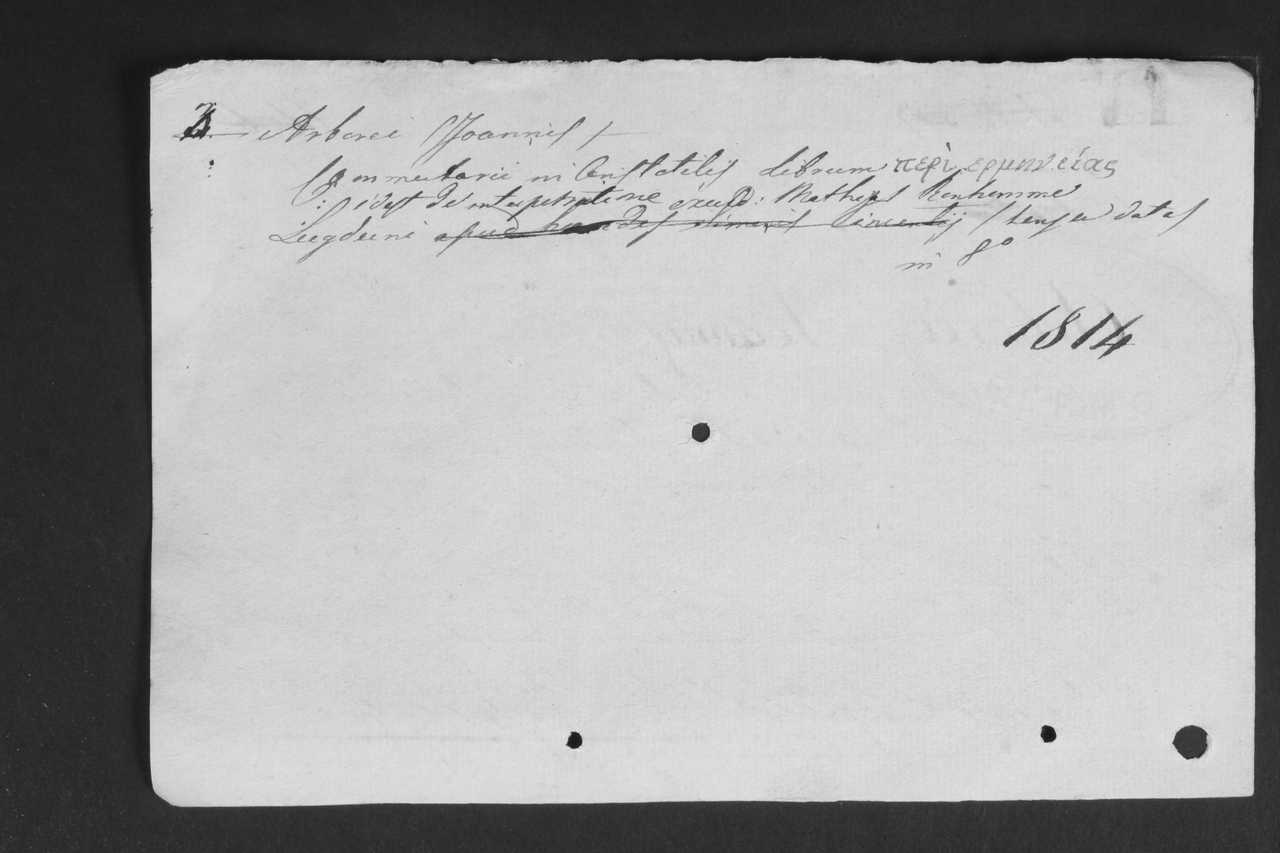 Arborei Joannis
Commentarii in Aristotelis librum περὶ ερμηνείας
: idest de interpretatione excud: Mathias Bonhomme
Lugduni apud haeredes simonis Vincentij sine data
in 8º
1814